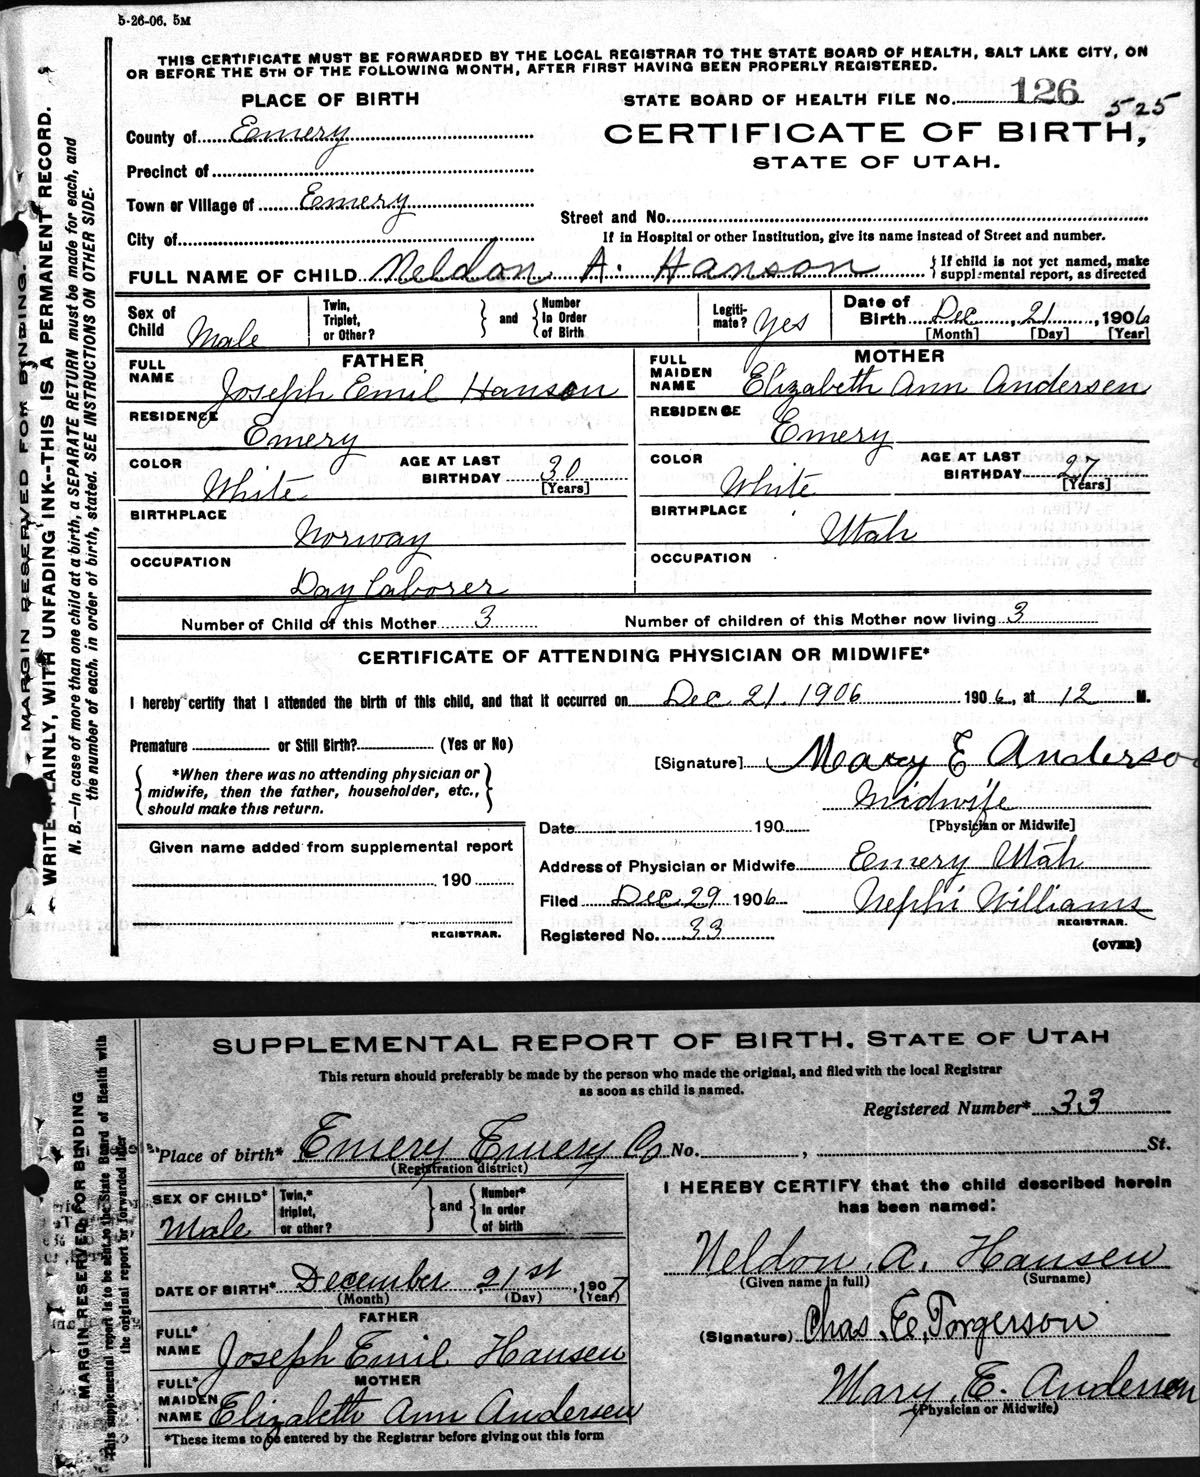 5-26-06. 5M
THIS CERTIFICATE MUST BE FORWARDED BY THE LOCAL REGISTRAR TO THE STATE BOARD OF HEALTH, SALT LAKE CITY, ON
OR BEFORE THE 5TH OF THE FOLLOWING MONTH, AFTER FIRST HAVING BEEN PROPERLY REGISTERED.
PLACE OF BIRTH
STATE BOARD OF HEALTH FILE No. 126 525
County of Emery
CERTIFICATE OF BIRTH,
STATE OF UTAH.
Precinct of
Town or Village of Emery
Street and No.
City of
If in Hospital or other Institution, give its name instead of Street and number.
FULL NAME OF CHILD Neldon A. Hanson { If child is not yet named, make supplemental report, as directed
Sex of Child Male
Twin, Triplet, or Other? } and { Number In Order of Birth
Legitimate? Yes
Date of Birth Dec, 21, 1906
[Month] [Day] [Year]
FATHER
FULL NAME Joseph Emil Hanson
MOTHER
FULL MAIDEN NAME Elizabeth Ann Andersen
RESIDENCE Emery
RESIDENCE Emery
COLOR White AGE AT LAST BIRTHDAY 30 [Years]
COLOR White AGE AT LAST BIRTHDAY 27 [Years]
BIRTHPLACE Norway
BIRTHPLACE Utah
OCCUPATION Day Laborer
OCCUPATION
Number of Child of this Mother 3 Number of children of this Mother now living 3
CERTIFICATE OF ATTENDING PHYSICIAN OR MIDWIFE*
I hereby certify that I attended the birth of this child, and that it occurred on Dec. 21. 1906 1906, at 12 M.
Premature or Still Birth? (Yes or No)
*When there was no attending physician or
midwife, then the father, householder, etc.,
should make this return.
[Signature] Mary E Anderso
Midwife
[Physician or Midwife]
Date 190
Given name added from supplemental report
190
REGISTRAR.
Address of Physician or Midwife Emery Utah
Filed Dec. 29 1906 Nephi Williams
REGISTRAR.
Registered No. 33
(OVER)
MARGIN RESERVED FOR BINDING.
WRITE PLAINLY, WITH UNFADING INK--THIS IS A PERMANENT RECORD.
N. B.—In case of more than one child at a birth, a SEPARATE RETURN must be made for each, and
the number of each, in order of birth, stated. SEE INSTRUCTIONS ON OTHER SIDE.
SUPPLEMENTAL REPORT OF BIRTH. STATE OF UTAH
This return should preferably be made by the person who made the original, and filed with the local Registrar
as soon as child is named.
Registered Number* 33
Place of birth* Emery Emery Co No. , St.
(Registration district)
SEX OF CHILD* Male
Twin,* triplet, or other? } and { Number* In order of birth
I HEREBY CERTIFY that the child described herein
has been named:
Neldon A. Hansen
(Given name in full) (Surname)
DATE OF BIRTH* December 21st, 1907
(Month) (Day) (Year)
FATHER
FULL* NAME Joseph Emil Hansen
(Signature) Chas. E. Torgerson
MOTHER
FULL* MAIDEN NAME Elizabeth Ann Andersen
Mary E. Andersen
(Physician or Midwife)
*These items to be entered by the Registrar before giving out this form
MARGIN RESERVED FOR BINDING
This supplemental report is to be sent to the State Board of Health with
the original report or forwarded later